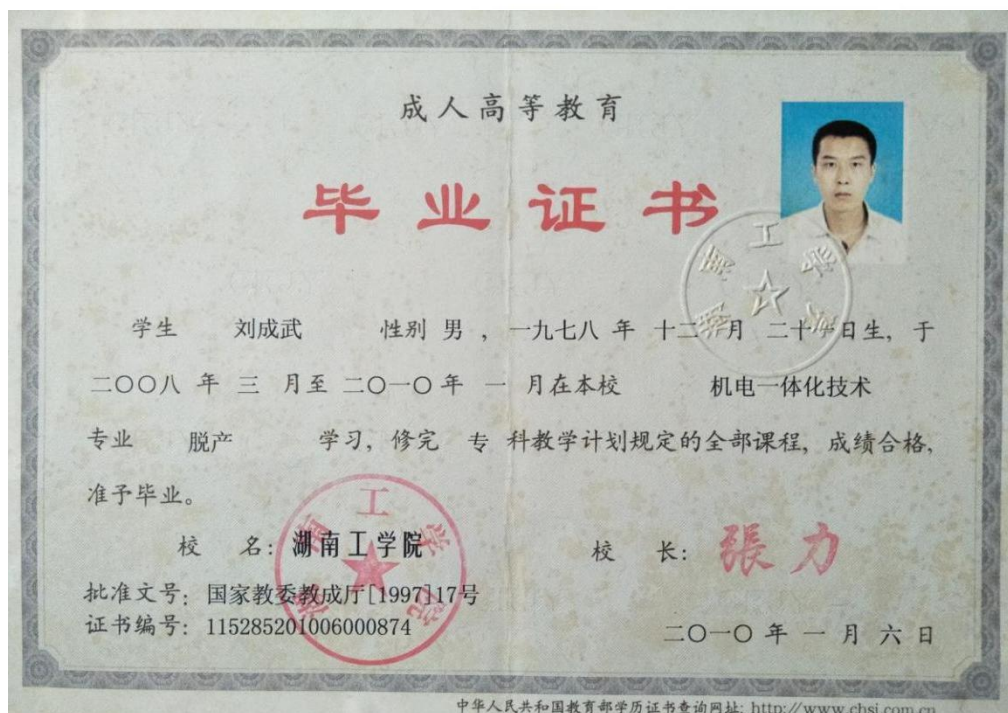 成人高等教育
毕业证书
学生 刘成武 性别 男 , 一九七八 年 十二 月 二十一日生, 于
二〇〇八 年 三 月至 二〇一〇年 一 月在本校 机电一体化技术
专业 脱产 学习, 修完 专 科教学计划规定的全部课程, 成绩合格,
准予毕业。
校 名: 湖南工学院 校 长: 張力
批准文号: 国家教委教成厅[1997]17号
证书编号: 115285201006000874
二〇一〇 年 一 月 六 日
湖南工学院
湖南工学院
中华人民共和国教育部学历证书查询网址: http://www.chsi.com.cn